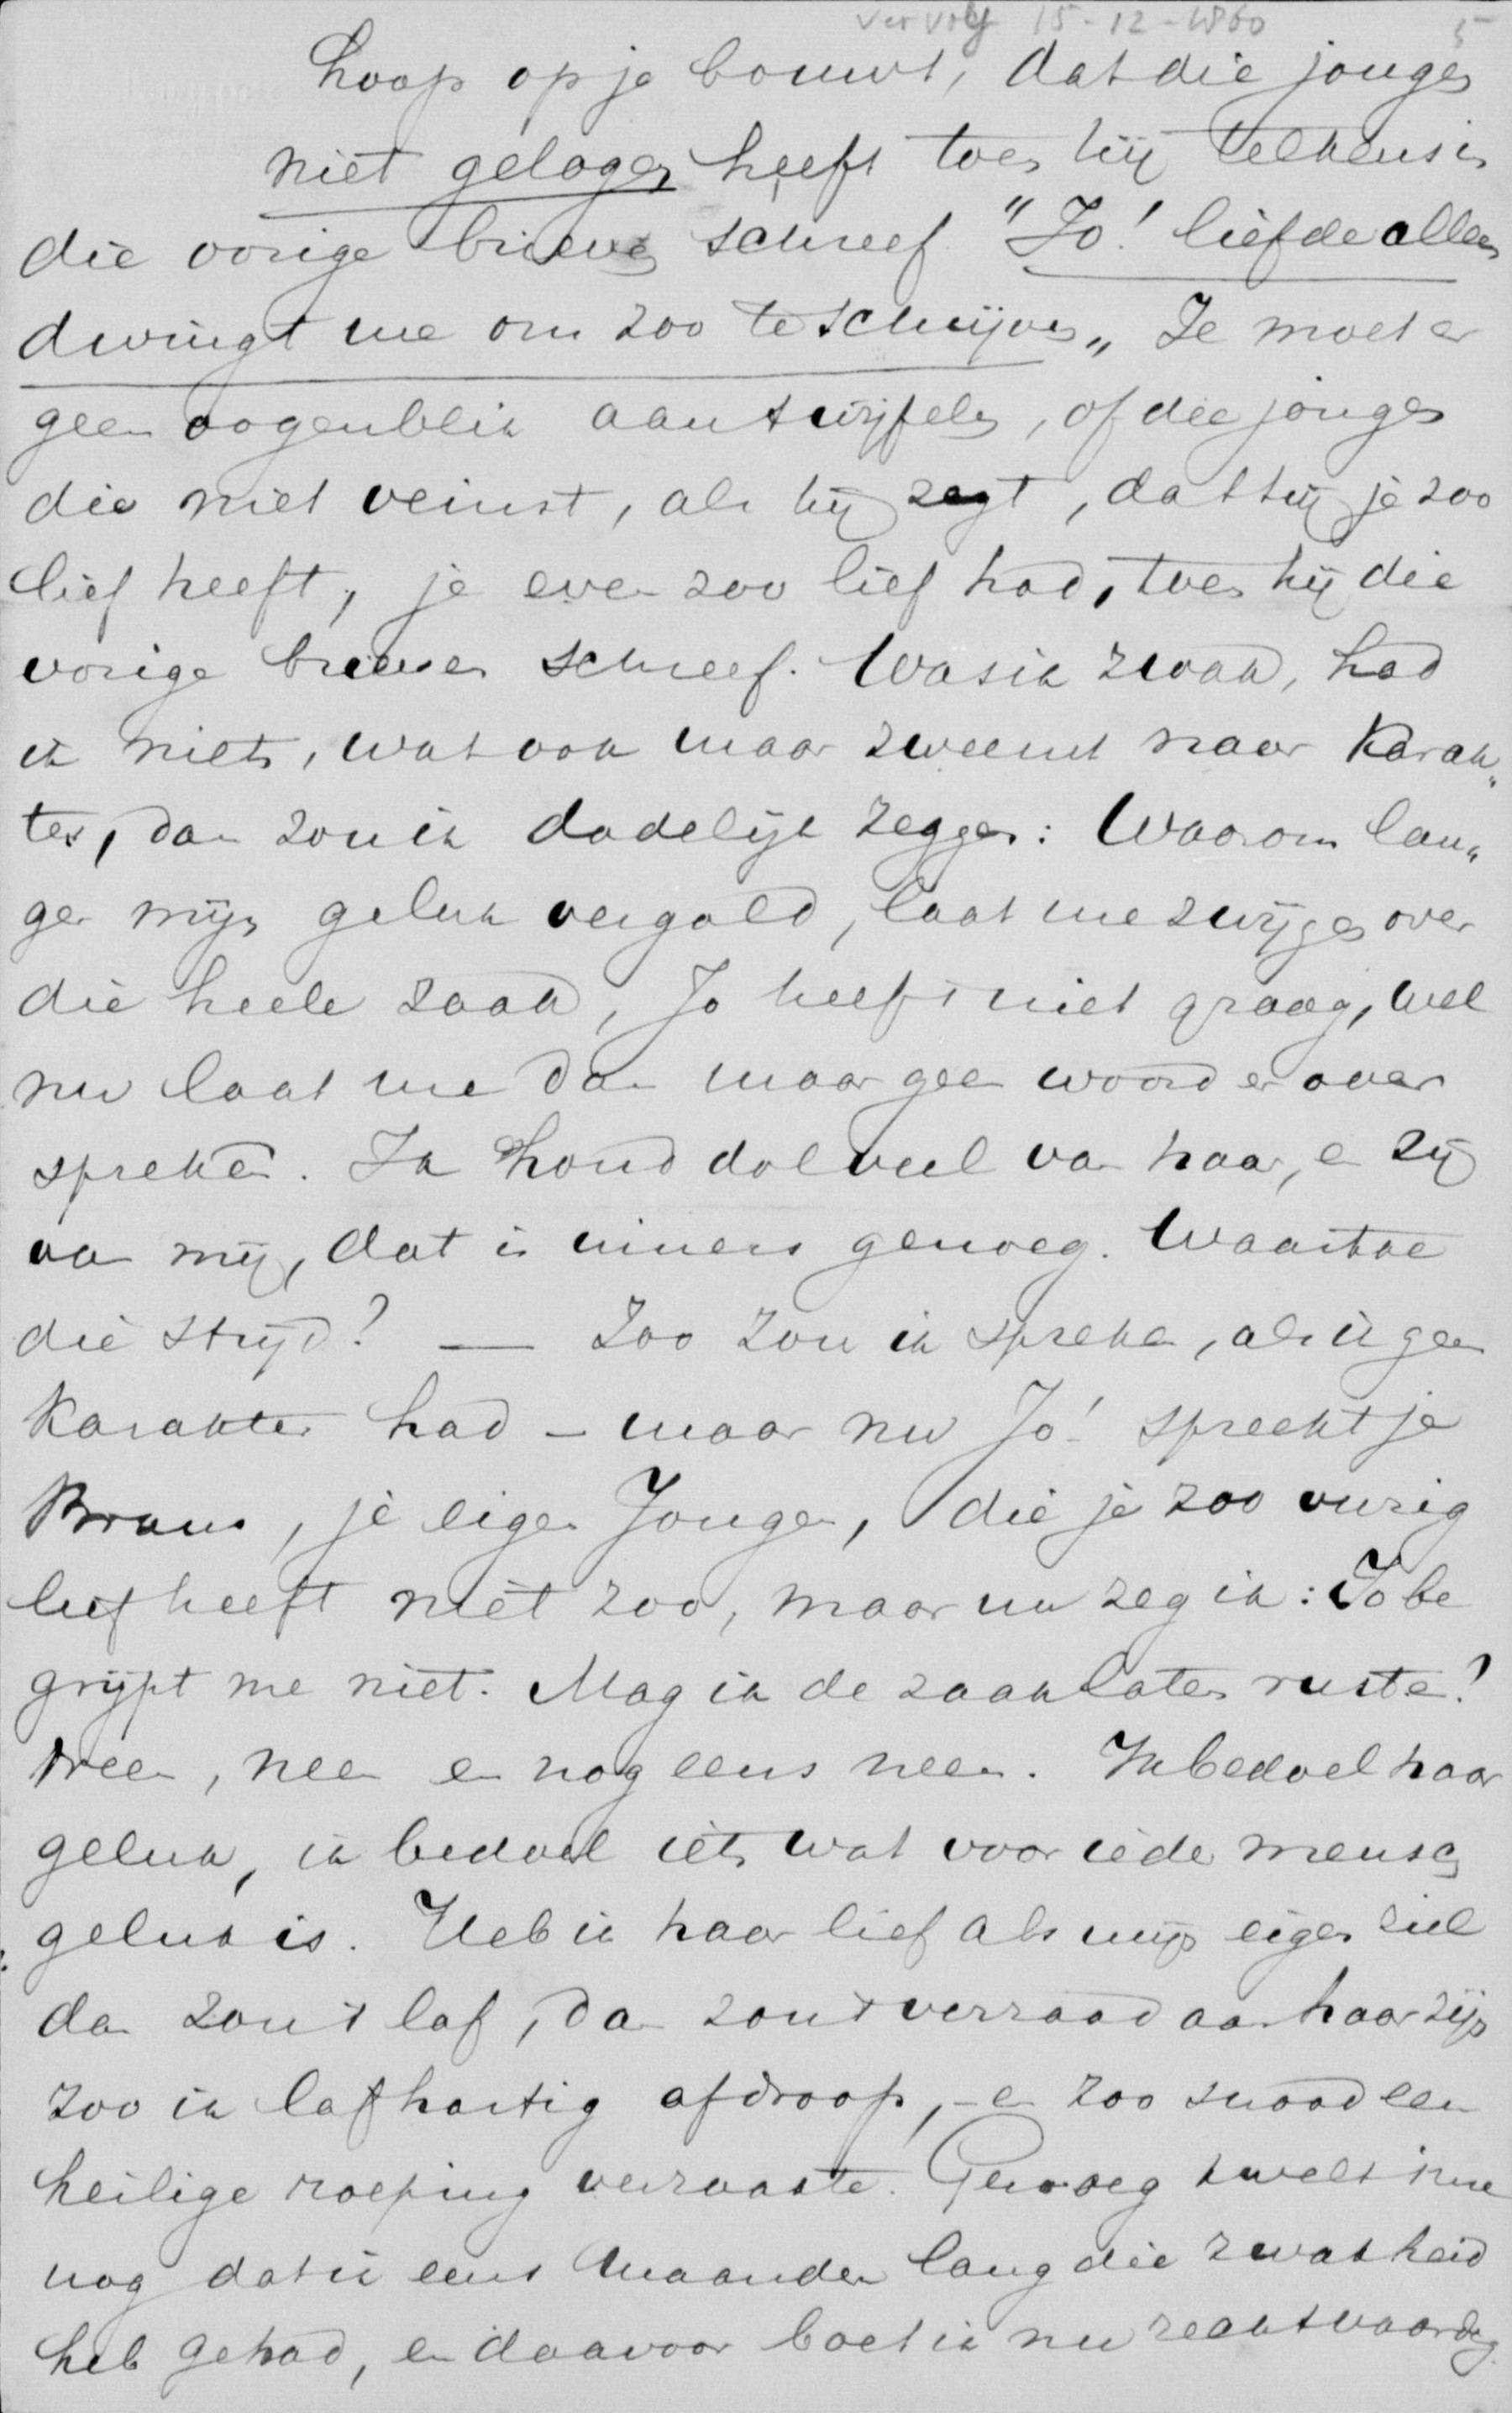 vervolg 15-12-1860 5
hoop op je bouwt, dat die jongen
niet gelogen heeft toen hij telkens in
die vorige brieven schreef "Jo! liefde alleen
dwingt me om zoo te schrijven„ Je moet er
geen oogenblik aan twijfelen, of die jongen
die niet veinst, als hij zegt, dat hij je zoo
lief heeft, je even zoo lief had, toen hij die
vorige brieven schreef. Was ik zwak, had
ik niets, wat ook maar zweemt naar Karak„
ter, dan zou ik dadelijk zeggen: Waarom lan„
ger mijn geluk vergald, laat me zwijgen over
die heele zaak, Jo heeft niet graag, wel
nu laat me dan maar geen woord er over
spreken. Ik houd dolveel van haar, en zij
van mij, dat is immers genoeg. Waartoe
die strijd? — Zoo zou ik spreken, als ik geen
Karakter had – maar nu Jo! spreekt je
Bram, je eigen Jongen, die je zoo vurig
lief heeft niet zoo, maar nu zeg ik: Jo be
grijpt me niet. Mag ik de zaak laten rusten?
Neen, neen en nog eens neen. Ik bedoel haar
geluk, ik bedoel iets wat voor ieder mensch
geluk is. Heb ik haar lief als mijn eigen ziel
dan zou 't laf, dan zou 't verraad aan haar zijn
zoo ik lafhartig afdroop, – en zoo snood een
heilige roeping verzaakte. Genoeg kwelt 't me
nog dat ik eens maanden lang die zwakheid
heb gehad, en daarvoor boet ik nu rechtvaardig.